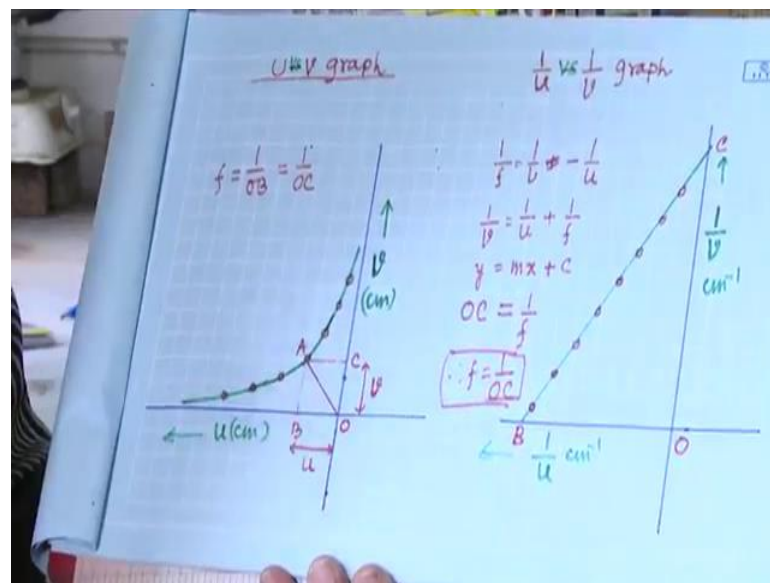 U vs V graph
f = 1/OB = 1/OC
V
(cm)
A
C
V
← U(cm)
B
O
U
1/U vs 1/V graph
1/f = 1/V - 1/U
1/V = 1/U + 1/f
y = mx + C
OC = 1/f
∴ f = 1/OC
C
1/V
cm⁻¹
B
O
← 1/U cm⁻¹